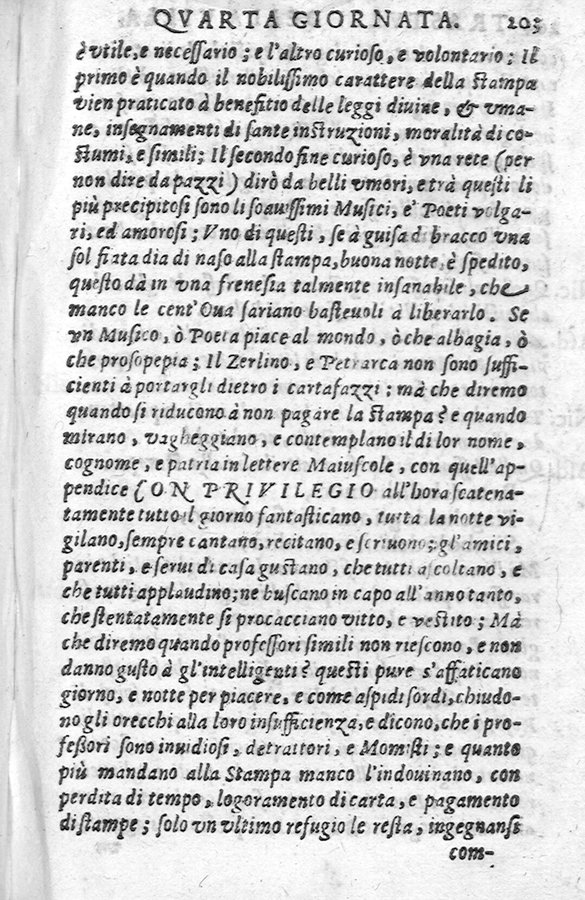 QVARTA GIORNATA. 203
è vtile, e necessario; e l'altro curioso, e volontario; Il
primo è quando il nobilissimo carattere della stampa
vien praticato à benefitio delle leggi diuine, & vma-
ne, insegnamenti di sante instruzioni, moralità di co-
stumi, e simili; Il secondo fine curioso, è vna rete (per
non dire da pazzi) dirò da belli vmori, e trà questi li
più precipitosi sono li soauissimi Musici, e' Poeti volga-
ri, ed amorosi; Vno di questi, se à guisa di bracco vna
sol fiata dia di naso alla stampa, buona notte, è spedito,
questo dà in vna frenesia talmente insanabile, che
manco le cent'Oua sariano basteuoli à liberarlo. Se
vn Musico, ò Poeta piace al mondo, ò che albagia, ò
che prosopepia; Il Zerlino, e Petrarca non sono suffi-
cienti à portargli dietro i cartafazzi; mà che diremo
quando si riducono à non pagare la stampa? e quando
mirano, vagheggiano, e contemplano il di lor nome,
cognome, e patria in lettere Maiuscole, con quell'ap-
pendice CON PRIVILEGIO all'hora scatena-
tamente tutto il giorno fantasticano, tutta la notte vi-
gilano, sempre cantano, recitano, e scriuono; gl'amici,
parenti, e serui di casa gustano, che tutti ascoltano, e
che tutti applaudino; ne buscano in capo all'anno tanto,
che stentatamente si procacciano vitto, e vestito; Mà
che diremo quando professori simili non riescono, e non
danno gusto à gl'intelligenti? questi pure s'affaticano
giorno, e notte per piacere, e come aspidi sordi, chiudo-
no gli orecchi alla loro insufficienza, e dicono, che i pro-
fessori sono inuidiosi, detrattori, e Momisti; e quanto
più mandano alla Stampa manco l'indouinano, con
perdita di tempo, logoramento di carta, e pagamento
di stampe; solo vn vltimo refugio le resta, ingegnansi
com-